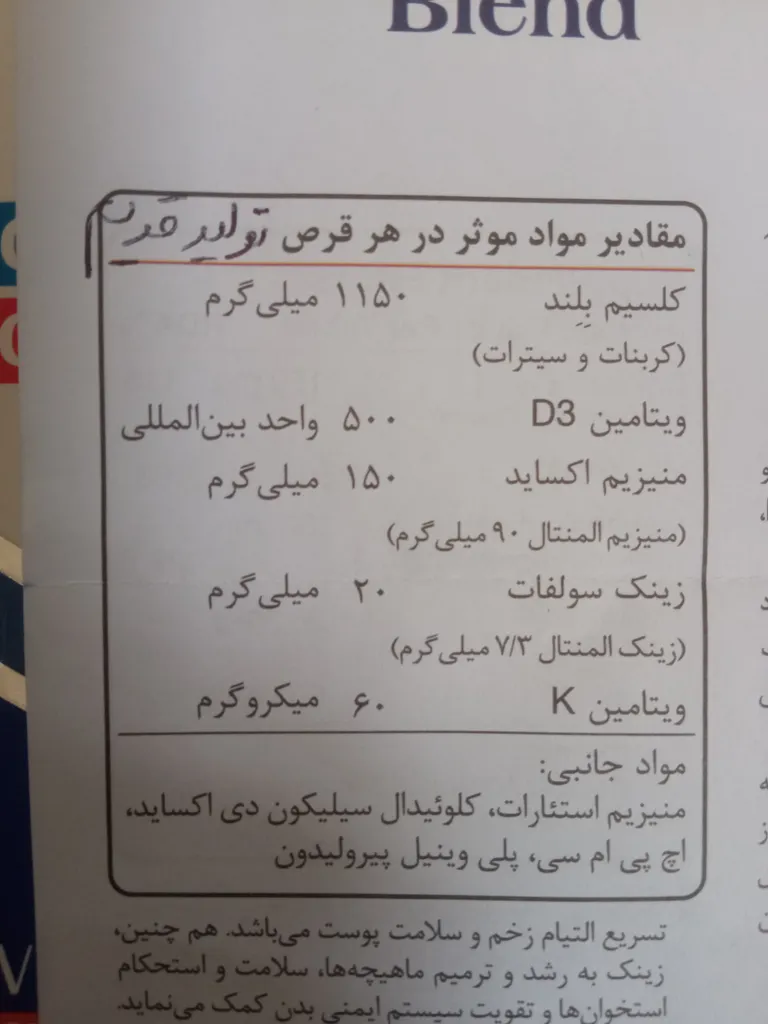 Blend
مقادیر مواد موثر در هر قرص تولید
کلسیم بِلِند ۱۱۵۰ میلی‌گرم
(کربنات و سیترات)
ویتامین D3 ۵۰۰ واحد بین‌المللی
منیزیم اکساید ۱۵۰ میلی‌گرم
(منیزیم المنتال ۹۰ میلی‌گرم)
زینک سولفات ۲۰ میلی‌گرم
(زینک المنتال ۷/۳ میلی‌گرم)
ویتامین K ۶۰ میکروگرم
مواد جانبی:
منیزیم استئارات، کلوئیدال سیلیکون دی اکساید،
اچ پی ام سی، پلی وینیل پیرولیدون
تسریع التیام زخم و سلامت پوست می‌باشد. هم چنین،
زینک به رشد و ترمیم ماهیچه‌ها، سلامت و استحکام
استخوان‌ها و تقویت سیستم ایمنی بدن کمک می‌نماید.